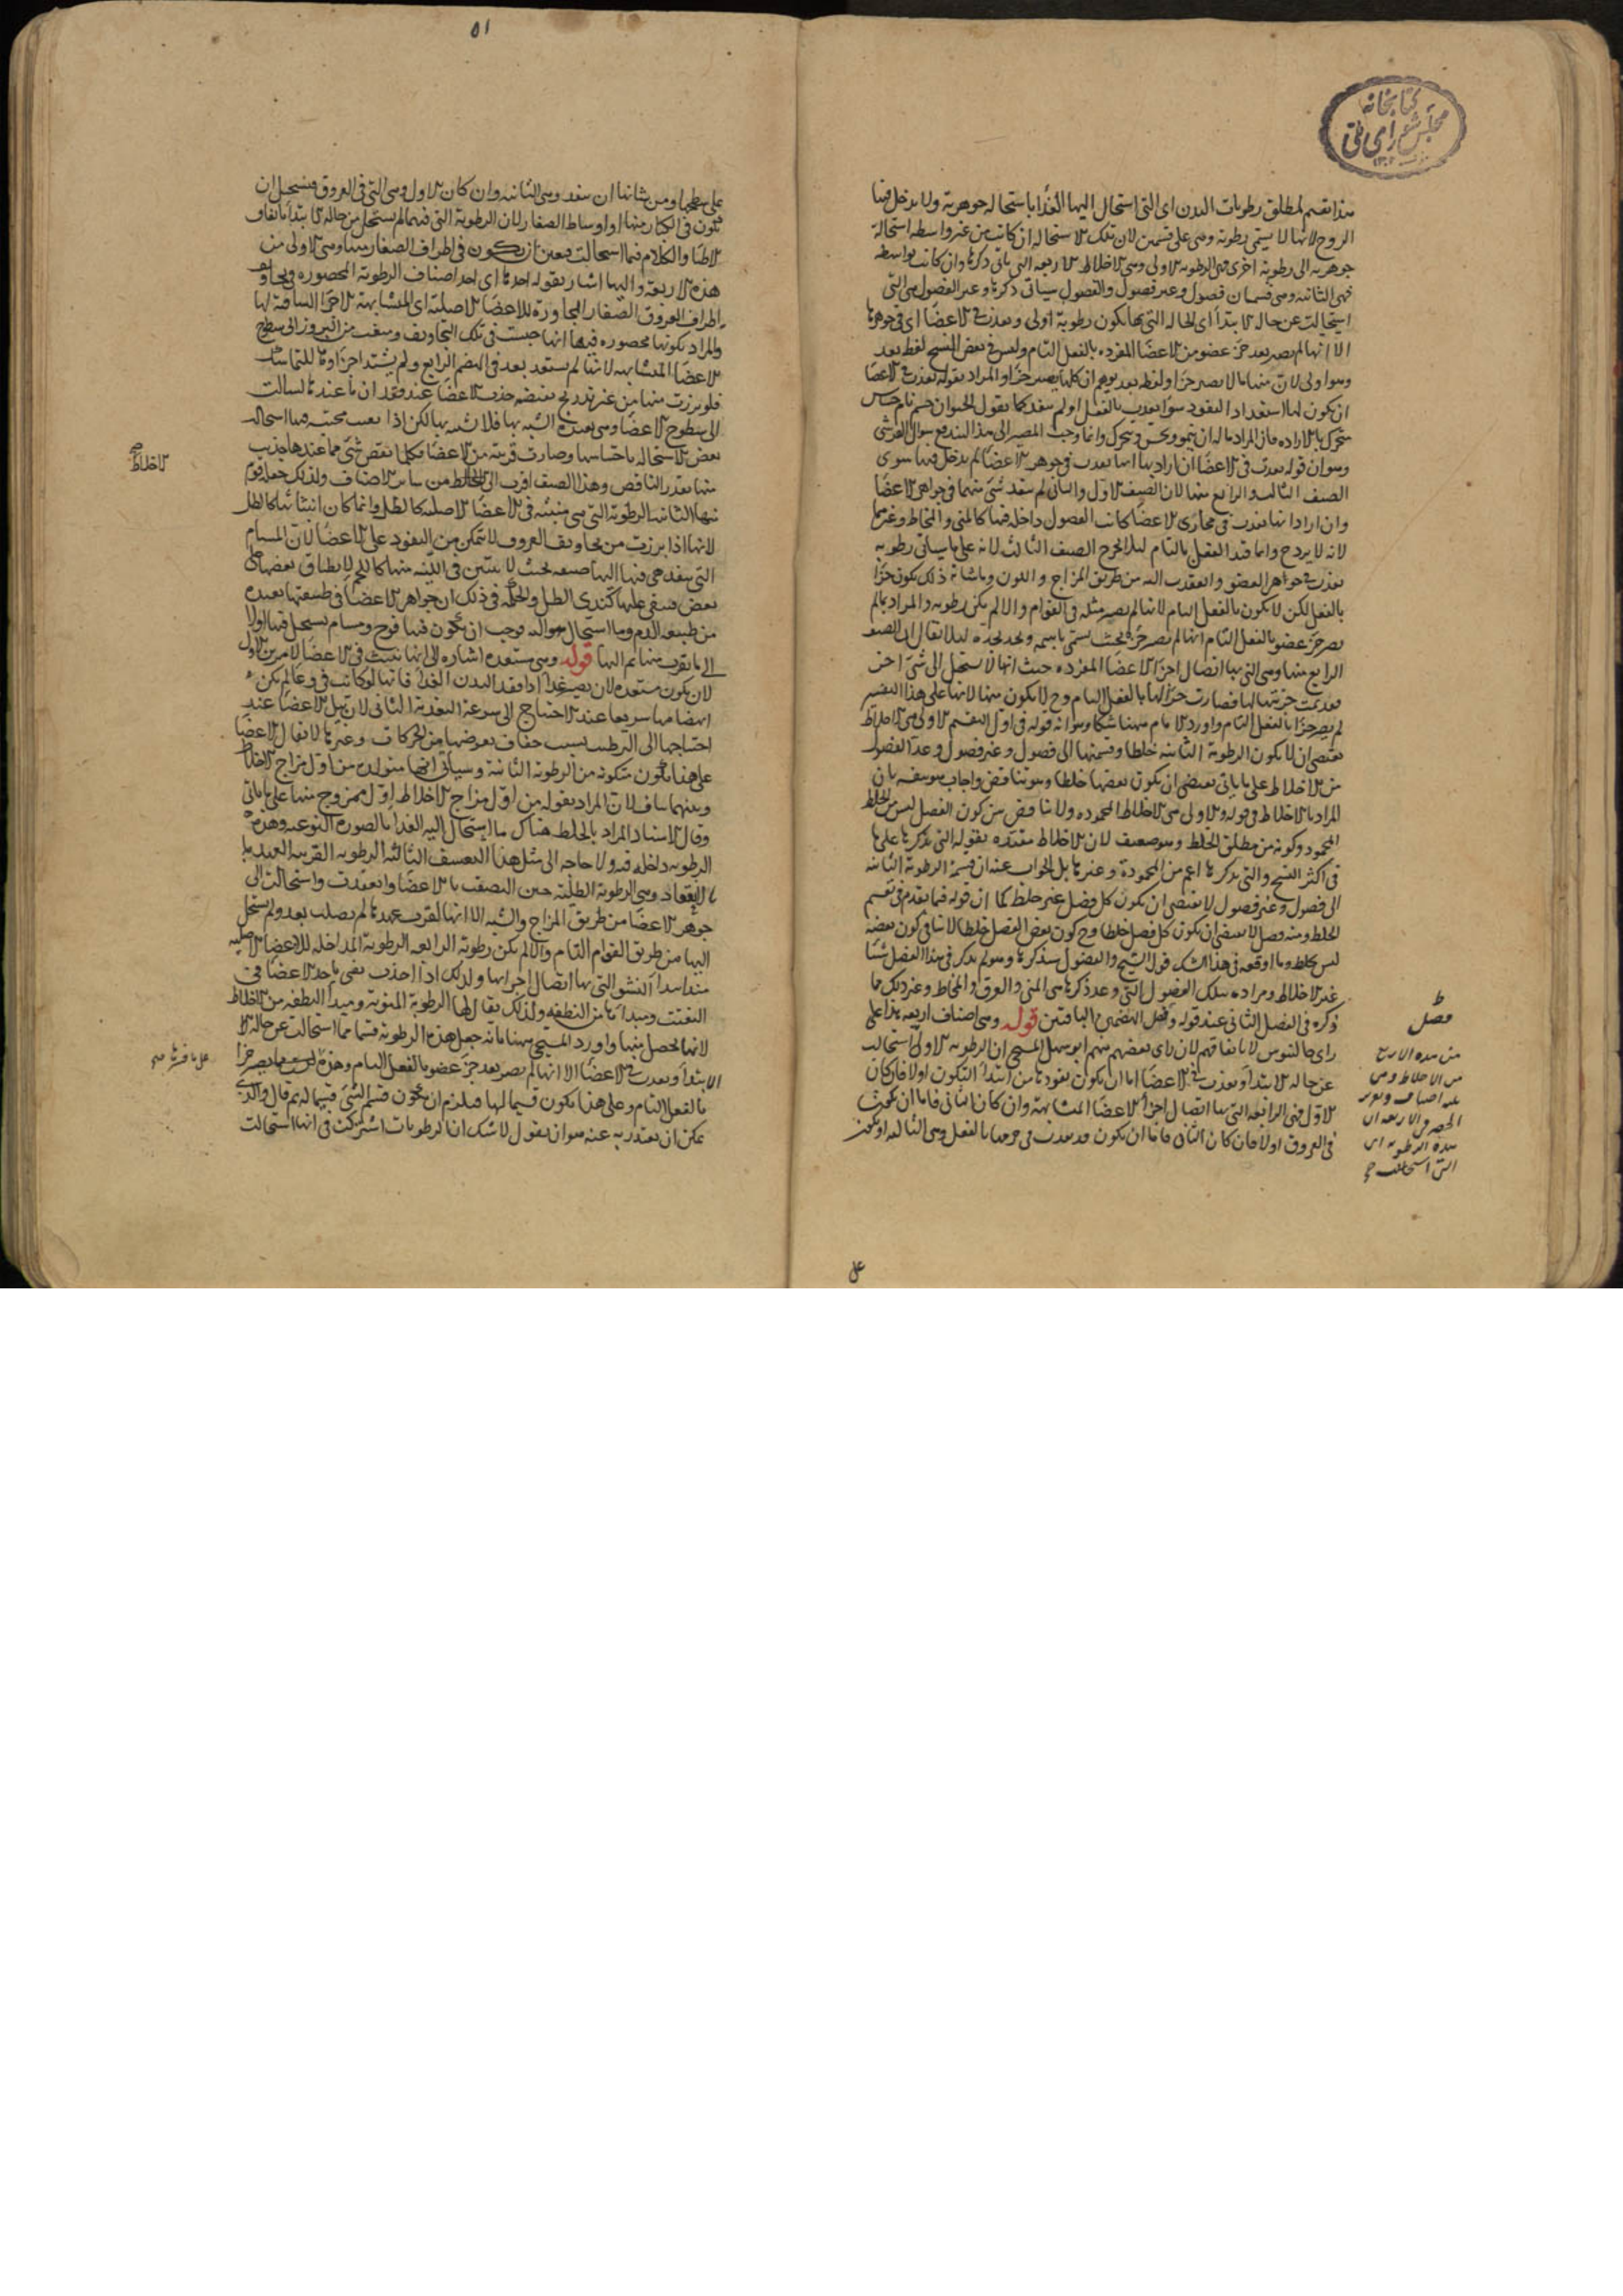 كتابخانه
مجلس شورای ملی
هذا تقسيم لمطلق رطوبات البدن اى التى استحال اليها الغذا باستحاله جوهرية ولا يدخل فيها
الروح لانها لا يسمى رطوبة وهى على قسمين لان تلك الاستحاله ان كانت من غير واسطه استحالة
جوهريه الى رطوبة اخرى فهى الرطوبه الاولى وهى الاخلاط الاربعه التى ياتى ذكرها وان كانت بواسطه
فهى الثانيه وهى قسمان فضول وغير فضول والفضول سياتى ذكرها وغير الفضول هى التى
استحالت عن حاله الابتدا اى الحاله التى بها يكون رطوبة اولى ونفذت فى الاعضا اى فى جوهرها
الا انها لم يصر بعد جزء عضو من الاعضا المفرده بالفعل التام وليس فى بعض النسخ لفظ بعد
وهو اولى لان منها ما لا يصير جزا ولفظ بعد يوهم ان كلها يصير جزا والمراد بقوله نفذت فى الاعضا
ان يكون لها استعداد النفود سوا نفدت بالفعل او لم تنفد كما يقول الحيوان جسم نام حساس
متحرك بالاراده فان المراد ما له ان ينمو ويحس ويتحرك وانما وجب المصير الى هذا ليندفع سوال القرشى
وهو ان قوله نفدت فى الاعضا ان اراد بها انها نفدت فى جوهر الاعضا لم يدخل فيها سوى
الصنف الثالث والرابع منها لان الصنف الاول والثانى لم ينفد شئ منهما فى جواهر الاعضا
وان اراد انها نفدت فى مجارى الاعضا كانت الفضول داخله فيها كالمنى والمخاط وغيرهما
لانه لا يرد ح وانما قيد الفعل بالتام ليلا يخرج الصنف الثالث لانه على ما سياتى رطوبه
نفدت فى جواهر العضو وانعقدت اليه من طريق المزاج واللون وما شانه ذلك يكون جزا
بالفعل لكن لا يكون بالفعل التام لانها لم يصر مثله فى القوام والا لم يكن رطوبه والمراد بما لم
يصر جزء عضو بالفعل التام انها لم يصر جزءه بحيث يسمى باسمه ويحد بحده ليلا يقال ان الصنف
الرابع منها وهى التى بها اتصال اجزا الاعضا المفرده حيث انها لا يستحل الى شئ اخر
لم يصر جزا بالفعل التام واورد الامام ههنا شكا وهو انه قوله فى اول التقسيم الاولى هى الاخلاط
يقتضى ان لا يكون الرطوبة الثانيه خلطا وقسمتها الى فضول وغير فضول وعد الفضول
من الاخلاط على ما ياتى يقتضى ان يكون بعضها خلطا وهو تناقض واجاب
المراد بالاخلاط فى قوله والاولى هى الاخلاط المحموده ولا تناقض بين كون الفضل ليس من الخلط
المحمود وكونه من مطلق الخلط وهو ضعيف لان الاخلاط مقيده بقوله التى نذكرها على ما
فى اكثر النسخ والتى يذكرها اعم من المحمودة وغيرها بل الجواب عنه ان قسمة الرطوبة الثانيه
الى فضول وغير فضول لا يقتضى ان يكون كل فضل غير خلط كما ان قوله فيما تقدم فى تقسيم
الخلط ومنه فضل لا يقتضى ان يكون كل فضل خلطا وح كون بعض الفضل خلطا لا ينافى كون بعضه
ليس بخلط وما اوقعه فى هذا الشك قول الشيخ والفضول سنذكرها وهو لم يذكر فى هذا الفصل شيئا
غير الاخلاط ومراده بتلك الفضول التى وعد ذكرها هى المنى والعرق والمخاط وغير ذلك مما
ذكره فى الفصل الثانى عند قوله وفضل الهضمين الباقيين قوله وهى اصناف اربعه هذا على
راى جالينوس لا باتفاقهم لان راى بعضهم منهم ابو سهل المسيحى ان الرطوبه الاولى استحالت
عن حاله الابتدا ونفذت فى الاعضا اما ان يكون نفودها من ابتدا التكون اولا فان كان
الاول فهى الرابعه التى بها اتصال اجزا الاعضا المتشابهة وان كان الثانى فاما ان يكون
فى العروق اولا فان كان الثانى فاما ان يكون قد نفدت فى جرمها بالفعل وهى الثالثه او يكون
ط
فصل
من هذه الاربع
من الاخلاط وهى
الحصر فى الاربعه ان
هذه الرطوبه ان
التى استحالت
٥١
على سطحها ومن شانها ان ينفد وهى الثانيه وان كان الاول وهى التى فى العروق فيستحيل ان
يكون فى الكبار منها او اوساط الصغار لان الرطوبة التى فيهما لم يستحل من حاله الابتدا باتفاق
الاطبا والكلام فيما استحالت فتعين ان يكون فى اطراف الصغار منها وهى الاولى من
هذه الاربعة واليها اشار بقوله احدها اى احد اصناف الرطوبة المحصوره فى تجاويف
اطراف العروق الصغار المجاورة للاعضا الاصلية اى المتشابهة الاجزا الساقية لها
والمراد بكونها محصوره فيها انها حبست فى تلك التجاويف ومنعت من البروز الى سطوح
الاعضا المتشابهه لانها لم يستعد بعد فى الهضم الرابع ولم يشتد اجزاوها للتماسك
فلو برزت منها من غير تدريج يقتضيه جذب الاعضا عند فقدان ما عندها لسالت
الى سطوح الاعضا وهى بعيدة الشبه بها فلا تشبه بها لكن اذا بقيت محتبسه فيها استحاله
بعض الاستحاله باحتباسها وصارت قريبة من الاعضا فكلما نقص شئ مما عندها جذب
منها بقدر الناقص وهذا الصنف اقرب الى الخلط من ساير الاصناف ولذلك جعله قوم
الاخلاط صح
منها الثانيه الرطوبة التى هى منبثه فى الاعضا الاصليه كالطل وانما كان انبثاثها كالطل
لانها اذا برزت من تجاويف العروق لا تتمكن من النفود على الاعضا لان المسام
التى ينفد هى فيها اليها ضيقه بحيث لا يتبين فى اللينه منها كاللحم لانطباق بعضها على
بعض فتبقى عليها كندى الطل والحكمة فى ذلك ان جواهر الاعضا فى طبيعتها بعيده
من طبيعه الدم وما استحال حواليه فوجب ان يكون فيها فرج ومسام يستحل فيها اولا
الى ما يقرب منها ثم اليها قوله وهى مستعده اشاره الى انها تنبث فى الاعضا لامرين الاول
لان يكون مستعده لان يصير غذا اذا فقد البدن الغذا فانها لو كانت فى وعا لم يكن
انهضامها سريعا عند الاحتياج الى سرعة التغدية الثانى لان تبل الاعضا عند
احتياجها الى الترطيب بسبب جفاف يعرضها من الحركات وغيرها لا يقال الاعضا
على هذا يكون متكونة من الرطوبة الثانية وسياتى انها متولده من اول مزاج الاخلاط
وبينهما تناف لان المراد بقوله من اول مزاج الاخلاط اول ممزوج منها على ما ياتى
وقال الاستاد المراد بالخلط هناك ما استحال اليه الغدا بالصورة النوعيه وهذه
الرطوبه داخله فيه ولا حاجه الى مثل هذا التعسف الثالثه الرطوبه القريبه العهد
بالانعقاد وهى الرطوبة الطلية حين التصقت بالاعضا وانعقدت واستحالت الى
جوهر الاعضا من طريق المزاج والشبه الا انها لقرب عهدها لم يصلب بعد ولم يستحل
اليها من طريق القوام التام والا لم يكن رطوبة الرابعه الرطوبة المداخله للاعضا الاصليه
منذ ابتدا النشو التى بها اتصال اجزائها ولذلك اذا اخذت تفنى ياخذ الاعضا فى
التفتت ومبداها من النطفه ولذلك يقال لها الرطوبة المنوية ومبدا النطفه من الاخلاط
لانها يحصل منها واورد المسيحى ههنا بانه جعل هذه الرطوبة قسما مما استحالت عن حاله
الابتدا ونفدت فى الاعضا الا انها لم يصر بعد جزء عضو بالفعل التام وهذه
بالفعل التام وعلى هذا يكون قسيما لها فيلزم ان يكون قسم الشئ قسيما له ثم قال والذى
يمكن ان يعتذر به عنه هو ان يقول لاشك ان الرطوبات اشتركت فى انها استحالت